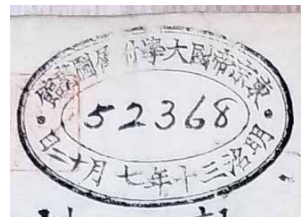 東京帝國大學附屬圖書館
52368
明治三十年七月十二日